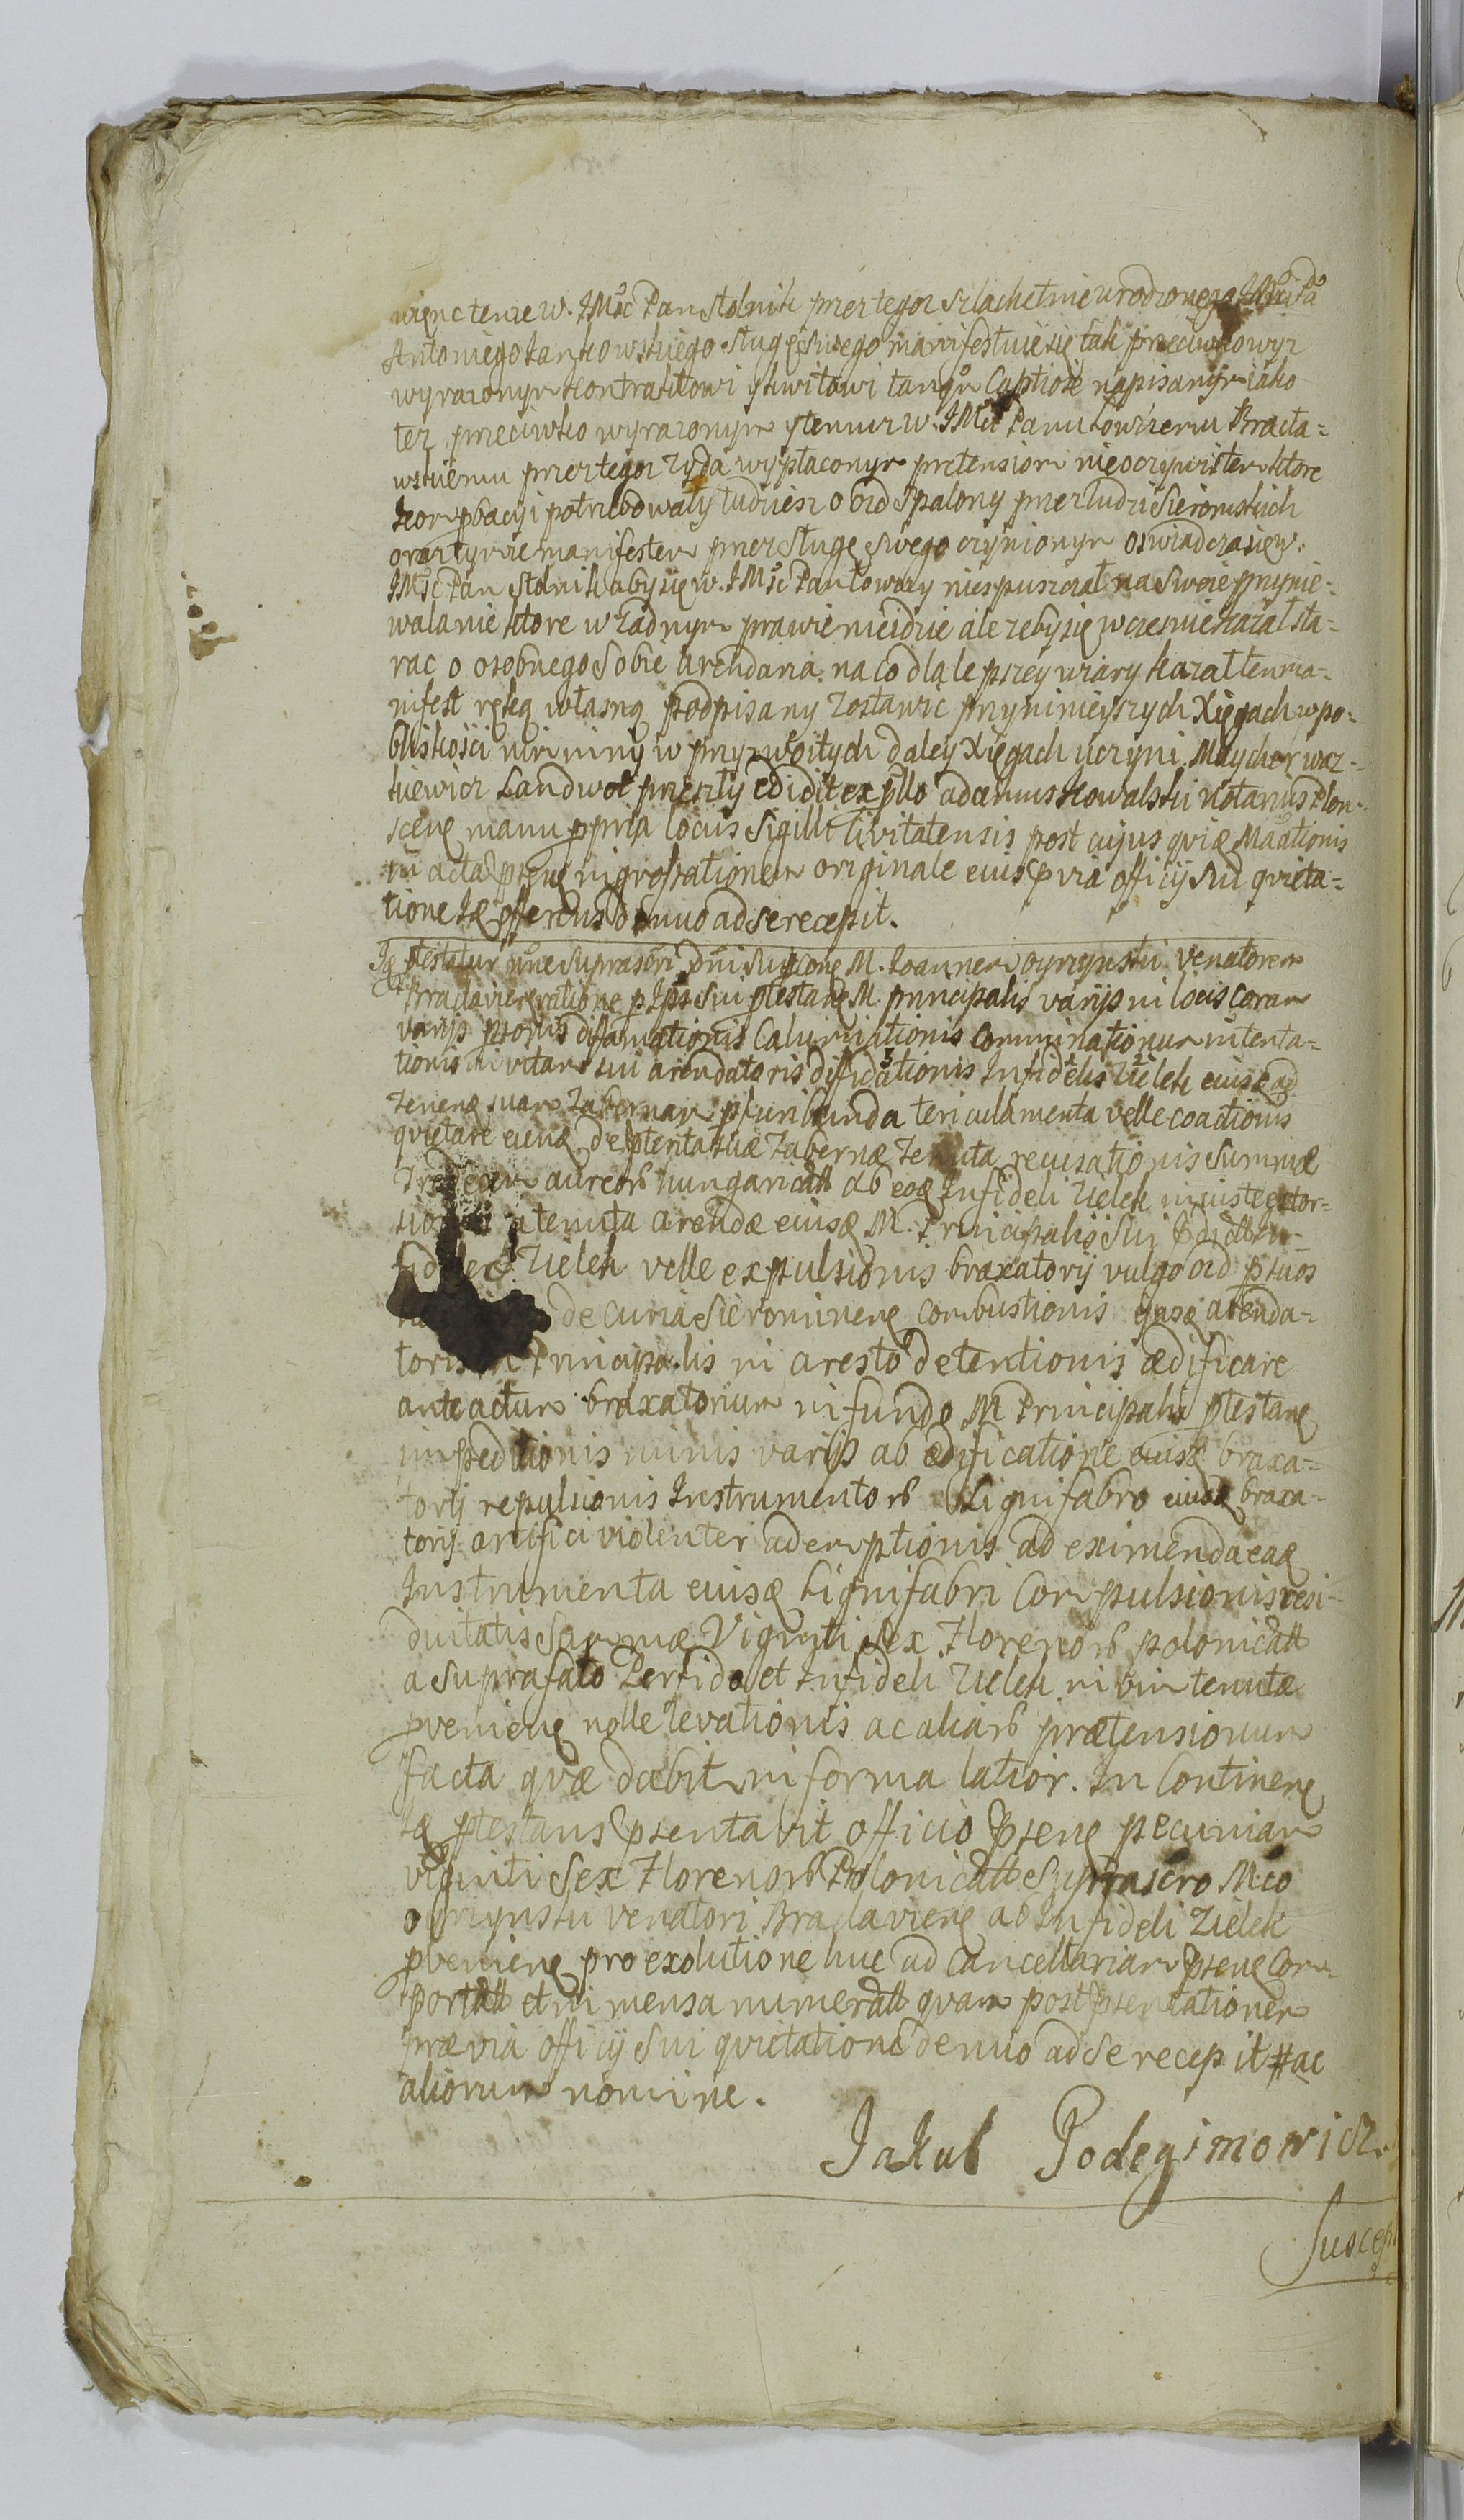 więnc tenze W. JMśc Pan Stolnik przez tegoz szlachetnie urodzonego JMści Pa
Antoniego Jankowskiego sługę swego manifestuie się tak przeciwko wyz
wyrazonym kontraktowi y kwitowi tanqm Captiose napisanym iako
tez przeciwko wyrazonym y temuz W. JMśc Panu Łowczemu Bracła=
wskiemu przez tegoz zyda wypłaconym pretensiom nieoczywistem ktore
komprobacyi potrzebowały tudziesz o ozd spalony przez ludzi Sieromskich
oraz tymze manifestem przez sługę swego czynionym oswiadcza się W.
JMśc Pan Stolnik aby się W. JMśc Pan Łowczy niespuszczał na swoie przynie=
walanie ktore w zadnym prawie nieidzie ale zeby się wczesnie kazał sta=
rac o osobnego sobie arendarza. na co dla lepszey wiary kazał ten ma=
nifest ręką własną podpisany zostawic przy ninieyszych Xięgach w po=
bliskosci uczyniony w przyzwoitych daley Xięgach uczyni. Maycher waz=
kiewicz Landwot przeszły edidit ex ptllo adamus Kowalski Notarius Plon=
scens manu ppria locus Sigilli Civitatensis post cujus quiae Maationis
in acta pserne ingrossationem originale eiusq pvia officij sui quieta=
tione Jq offerens denuo ad se recepit.
Jq ptestatur nne suprascri dni sui cone M. Joannem oyrzynski venatorem
Bradaviens ratione p Ips sui ptestans M. principalis varijs in locis coram
varijs psonis diffamationis Calumniationis comminationum intenta=
tionis in vitam sui arendatoris diffidationis Infidelis Zielek eiusq ad
tenens suam Tabernam pluribunda periculamenta velle coactionis
quietare eiusq de ptenta suae Tabernae Tenuta recusationis summae
Tredecim aureors hungaricall ab eoq Infideli Zielek iniuste extor=
sionis a tenuta arendae eiusq M. Principalis sui
Zielek velle expulsionis braxatorij vulgo ozd p suos
de Curia Sierominens combustionis arenda=
toris M Principalis in aresto detentionis aedificare
anteactum braxatorium in fundo M Principalis ptestans
impeditionis minis varijs ab aedificatione eiusq braxa=
torij repulsionis Instrumentors Lignifabro eiusq braxa=
torij artifici violenter ademptionis ad eximenda eaq
Instrumenta eiusq Lignifabri Compulsionis resi=
duitatis Summae Viginti Sex Florenors polonicall
a suprafato Perfido et Infideli Zielek in vim tenutae
pveniens nolle levationis ac aliars praetensionum
facta quae dabit in forma latior. In Continens
Jq ptestans psentavit officio psens pecuniam
viginti Sex Florenors Polonicall Suprascro Mco
oyrzynski venatori Bradaviens ab Infideli Zielek
pveniens pro exolutione huc ad Cancellariam psens Com=
portall et in mensa numerall quam post psentationem
praevia officij sui quietatione denuo ad se recepit # ac
aliorum nomine.
Jakub Podegimowicz
Suscep